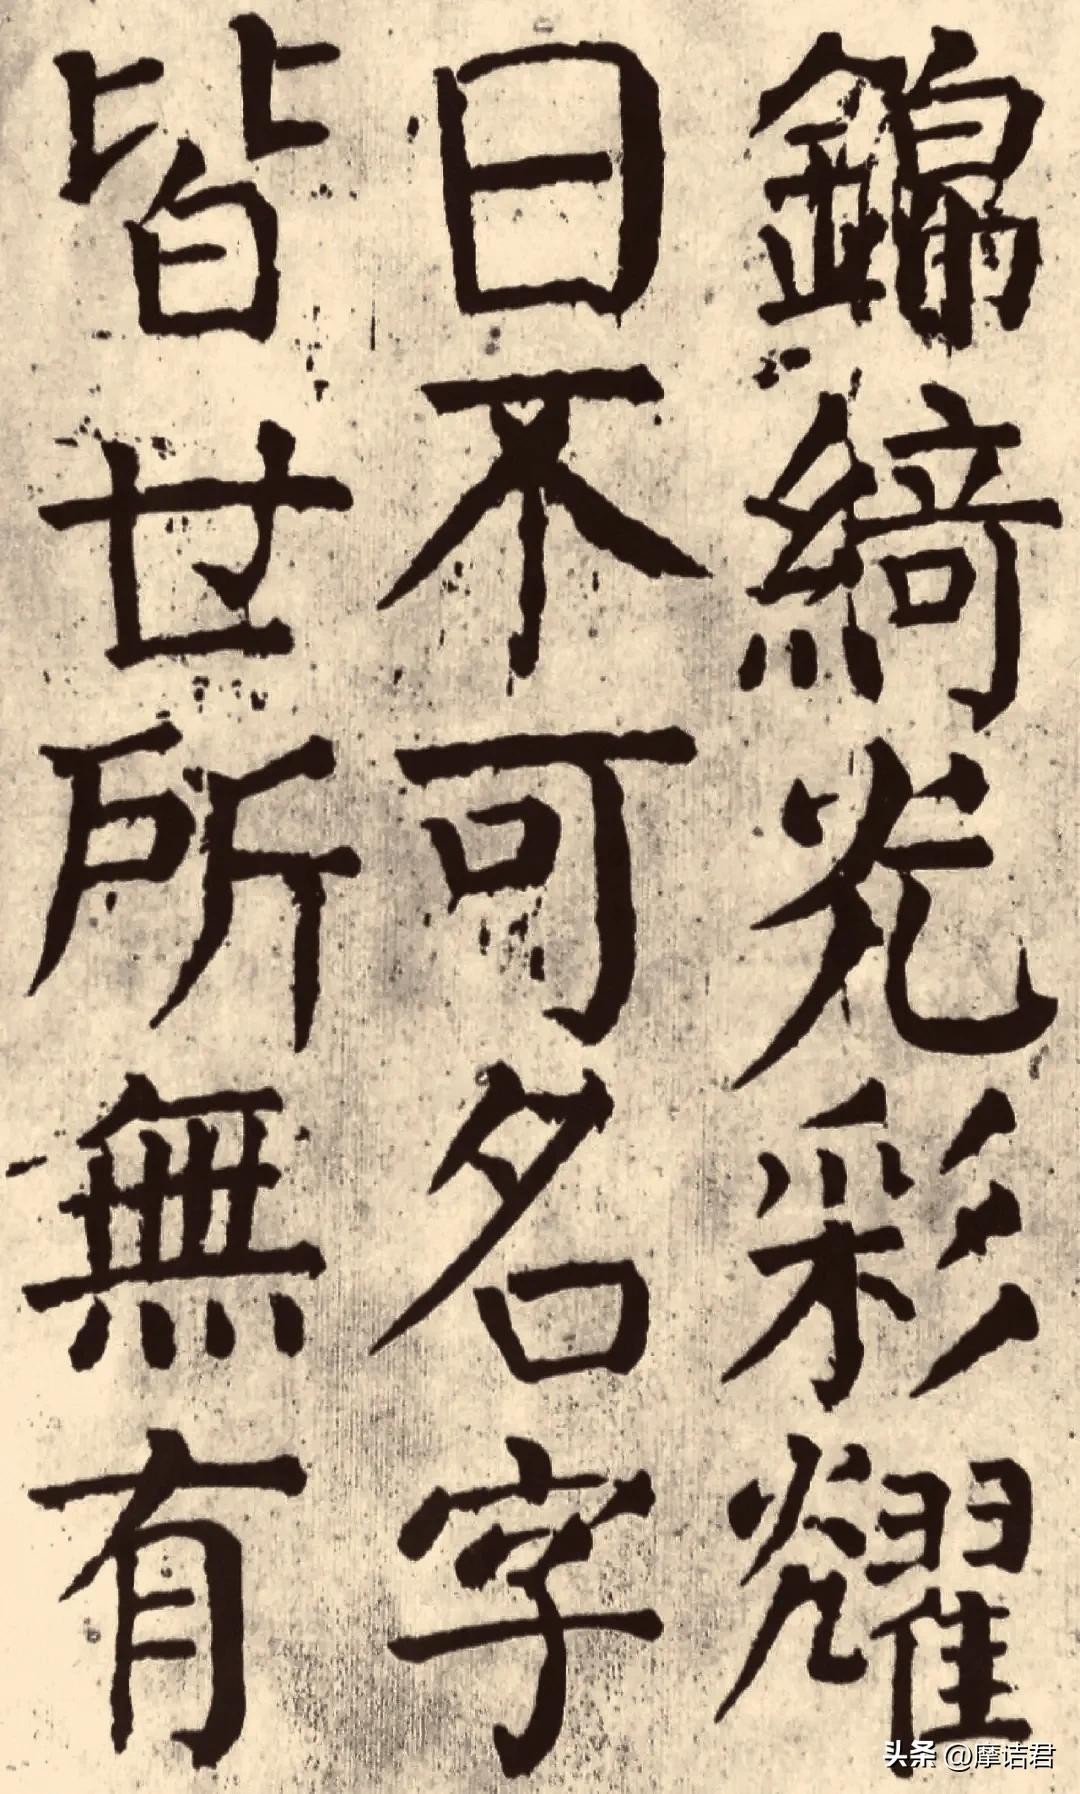 錦綺光彩耀
日不可名字
皆世所無有
头条 @摩诘君